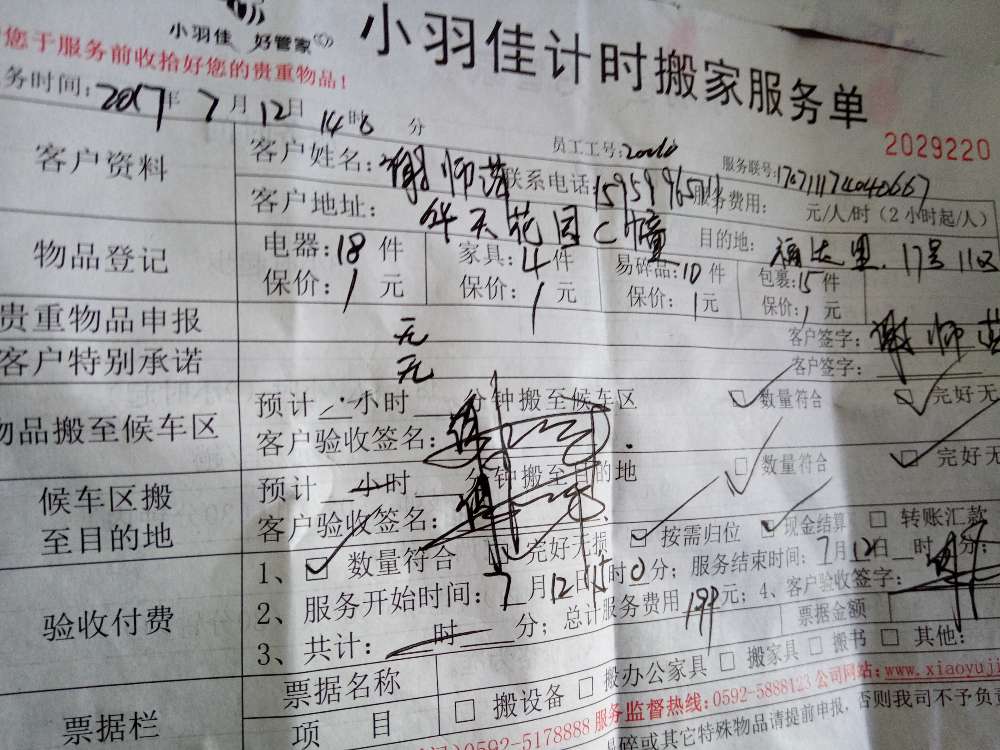 小羽佳 好管家
小羽佳计时搬家服务单
您于服务前收拾好您的贵重物品！
务时间：2017年7月12日14时0分
员工工号：
2029220
服务联号：
客户资料
客户姓名：谢师
联系电话：
服务费用： 元/人/时（2小时起/人）
客户地址：天花园C幢
目的地：福达里 17号
物品登记
电器：18件 家具：4件 易碎品：10件 包裹：15件
保价：1元 保价：1元 保价：1元 保价：1元
贵重物品申报 无 客户签字：谢师
客户特别承诺 无 客户签字：
物品搬至候车区
预计 小时 分钟搬至候车区 数量符合 完好无
客户验收签名：
候车区搬至目的地
预计 小时 分钟搬至目的地 数量符合 完好无
客户验收签名：
验收付费
1、数量符合 完好无损 按需归位 现金结算 转账汇款
2、服务开始时间：7月12日15时0分；服务结束时间：7月12日 时 分；
3、共计： 时 分；总计服务费用 元；4、客户验收签字：
票据栏
票据名称 票据金额
项目 搬设备 搬办公家具 搬家具 搬书 其他：
0592-5178888 服务监督热线：0592-5888123 公司网站：www.xiaoyuji
碎或其它特殊物品请提前申报，否则我司不予负